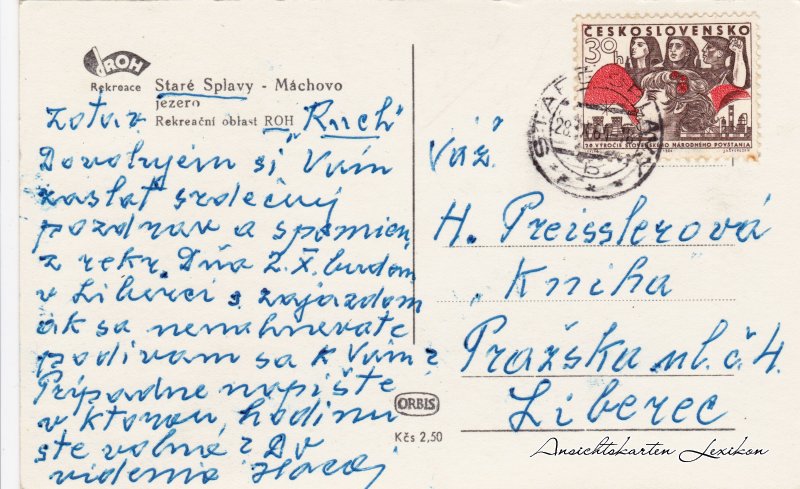 ROH
Rekreace
Staré Splavy - Máchovo
jezero
Rekreační oblast ROH
zotav. "Ruch"
Dovolujem si Vám
zaslať srdečný
pozdrav a spomien.
z rekr. Dňa 2.X. budem
v Liberci s zájazdom
ak sa nenahnevate
podivam sa k Vám?
Prípadne napište
v ktorou hodinu
ste volna? Do
videnia
ORBIS
Kčs 2,50
ČESKOSLOVENSKO
30h
20. VÝROČIE SLOVENSKÉHO NÁRODNÉHO POVSTANIA
Váž.
H. Preisslerová
"Kniha"
Pražská ul. č. 4.
Liberec
Ansichtskarten Lexikon